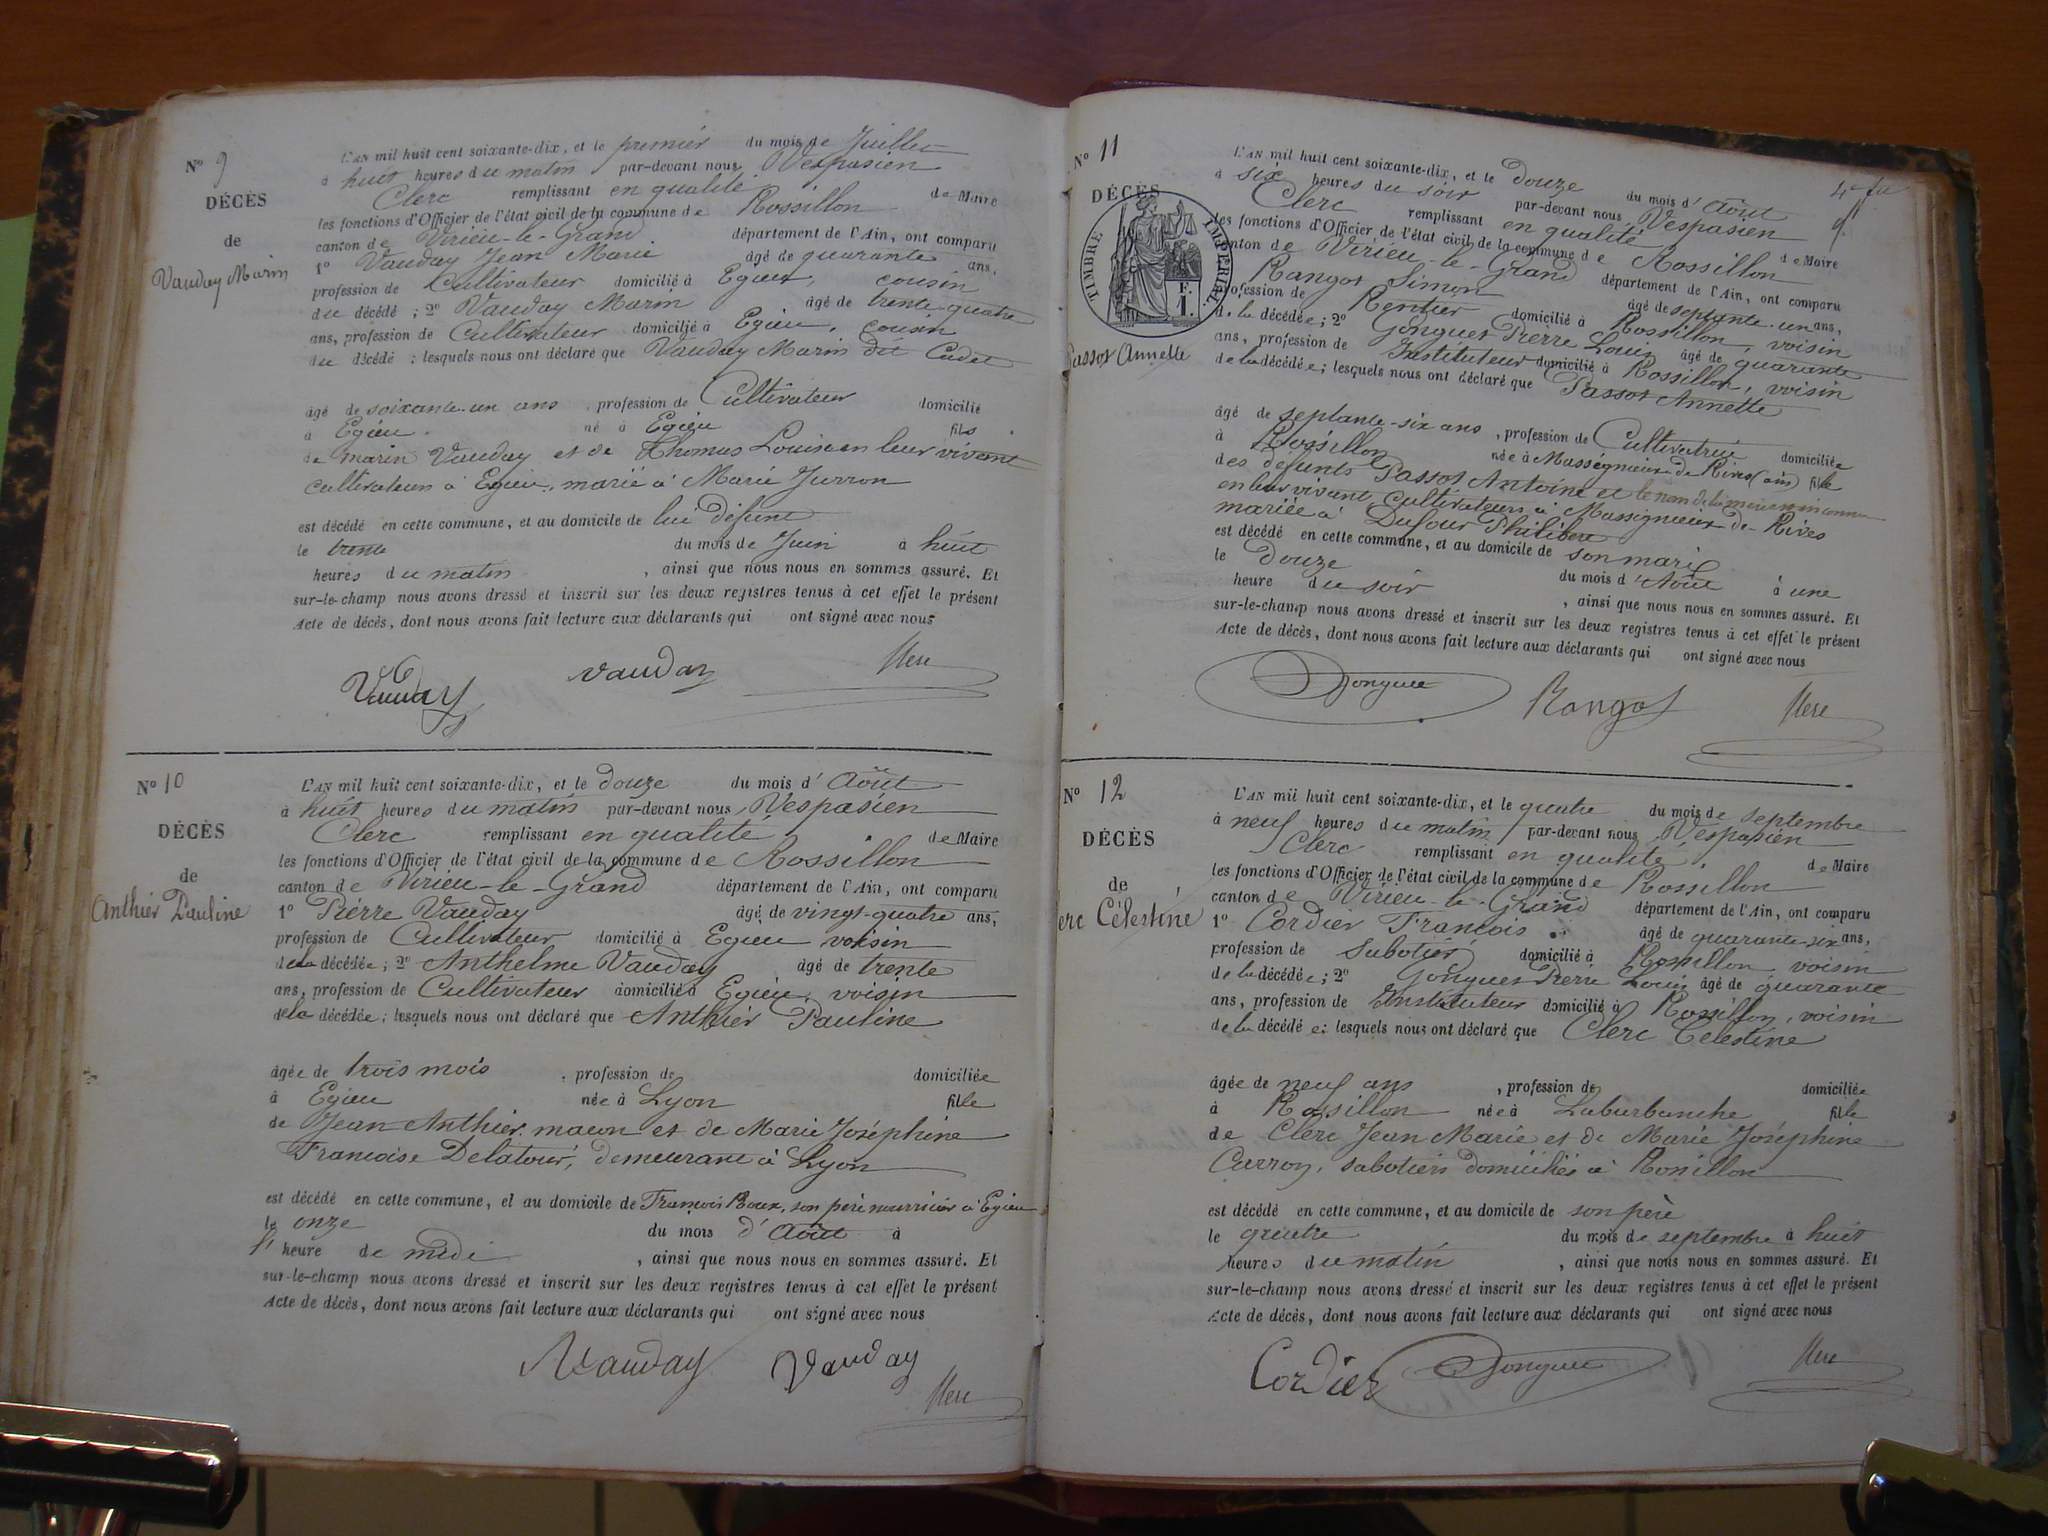 N° 9
DÉCÈS
de
Vauday Marin
L'AN mil huit cent soixante-dix, et le premier du mois de Juillet
à huit heures du matin par-devant nous Vespasien
Clerc remplissant en qualité de Maire
les fonctions d'Officier de l'état civil de la commune de Rossillon
canton de Virieu-le-Grand département de l'Ain, ont comparu
1° Vauday Jean Marie âgé de quarante ans,
profession de Cultivateur domicilié à Egieu, cousin
du décédé ; 2° Vauday Marin âgé de trente-quatre
ans, profession de Cultivateur domicilié à Egieu, cousin
du décédé ; lesquels nous ont déclaré que Vauday Marin dit Cadet
âgé de soixante-un ans, profession de Cultivateur domicilié
à Egieu. né à Egieu fils
de marin Vauday et de Thomas Louise en leur vivant
cultivateurs à Egieu, marié à Marie Jurron
est décédé en cette commune, et au domicile de lui défunt
le trente du mois de Juin à huit
heures du matin, ainsi que nous nous en sommes assuré. Et
sur-le-champ nous avons dressé et inscrit sur les deux registres tenus à cet effet le présent
Acte de décès, dont nous avons fait lecture aux déclarants qui ont signé avec nous
Vauday vauday Clerc
N° 10
DÉCÈS
de
Anthier Pauline
L'AN mil huit cent soixante-dix, et le douze du mois d'Août
à huit heures du matin par-devant nous Vespasien
Clerc remplissant en qualité de Maire
les fonctions d'Officier de l'état civil de la commune de Rossillon
canton de Virieu-le-Grand département de l'Ain, ont comparu
1° Pierre Vauday âgé de vingt-quatre ans,
profession de Cultivateur domicilié à Egieu voisin
de la décédée ; 2° Anthelme Vauday âgé de trente
ans, profession de Cultivateur domicilié à Egieu, voisin
de la décédée ; lesquels nous ont déclaré que Anthier Pauline
âgée de trois mois, profession de domiciliée
à Egieu née à Lyon fille
de Jean Anthier, macon et de Marie Joséphine
Francoise Delatour, demeurant à Lyon
est décédé en cette commune, et au domicile de François Roux, son père nourricier à Egieu
le onze du mois d'Août à
l'heure de midi, ainsi que nous nous en sommes assuré. Et
sur-le-champ nous avons dressé et inscrit sur les deux registres tenus à cet effet le présent
Acte de décès, dont nous avons fait lecture aux déclarants qui ont signé avec nous
Vauday Vauday
Clerc
N° 11
DÉCÈS
TIMBRE IMPÉRIAL
F.
1.
Passot Annette
L'AN mil huit cent soixante-dix, et le douze du mois d'Août
à six heures du soir par-devant nous Vespasien
Clerc remplissant en qualité de Maire
les fonctions d'Officier de l'état civil de la commune de Rossillon
canton de Virieu-le-Grand département de l'Ain, ont comparu
Rangot Simon âgé de septante-un ans,
profession de Rentier domicilié à Rossillon, voisin
de la décédée ; 2° Gonguet Pierre Louis âgé de quarante
ans, profession de Instituteur domicilié à Rossillon, voisin
de la décédée ; lesquels nous ont déclaré que Passot Annette
âgé de septante-six ans, profession de Cultivatrice domiciliée
à Rossillon née à Masségnieux de Rives (ain) fille
des défunts Passot Antoine et le nom de la mère inconnu
en leur vivant, cultivateurs à Massignieux-de-Rives
mariée à Dufour Philibert
est décédé en cette commune, et au domicile de son mari
le douze du mois d'Août à une
heure du soir, ainsi que nous nous en sommes assuré. Et
sur-le-champ nous avons dressé et inscrit sur les deux registres tenus à cet effet le présent
Acte de décès, dont nous avons fait lecture aux déclarants qui ont signé avec nous
Gonguet Rangot Clerc
N° 12
DÉCÈS
de
Clerc Célestine
L'AN mil huit cent soixante-dix, et le quatre du mois de septembre
à neuf heures du matin par-devant nous Vespasien
Clerc remplissant en qualité de Maire
les fonctions d'Officier de l'état civil de la commune de Rossillon
canton de Virieu-le-Grand département de l'Ain, ont comparu
1° Cordier Francois âgé de quarante-six ans,
profession de Sabotier domicilié à Rossillon voisin
de la décédée ; 2° Gonguet Pierre Louis âgé de quarante
ans, profession de Instituteur domicilié à Rossillon, voisin
de la décédée ; lesquels nous ont déclaré que Clerc Célestine
âgée de neuf ans, profession de domiciliée
à Rossillon née à Laburbanche fille
de Clerc Jean Marie et de Marie Joséphine
Curron, sabotiers domiciliés à Rossillon
est décédé en cette commune, et au domicile de son père
le quatre du mois de septembre à huit
heures du matin, ainsi que nous nous en sommes assuré. Et
sur-le-champ nous avons dressé et inscrit sur les deux registres tenus à cet effet le présent
Acte de décès, dont nous avons fait lecture aux déclarants qui ont signé avec nous
Cordier Gonguet Clerc